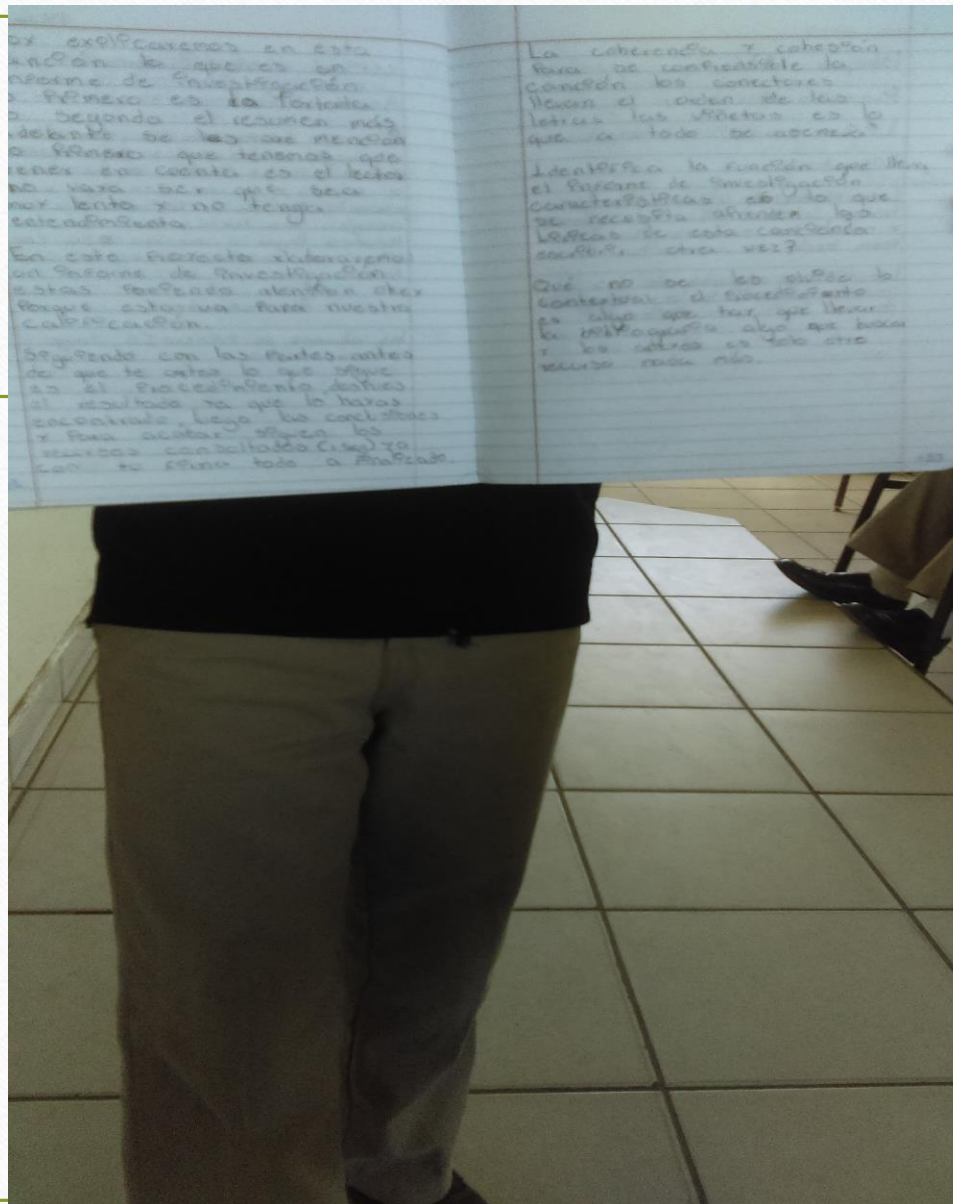 explicaremos en esta
canción lo que es un
informe de investigación
Primero es la Portada
segundo el resumen más
delante se les mención
lo Primero que tenemos que
tener en cuenta es el lector
no vaya ser que sea
muy lento y no tenga
entendimiento

En este Proyecto elaborare
un informe de investigación
estas Poniendo atención
Porque esto va Para nuestra
calificación.

Siguiendo con las Partes antes
de que te lo que sigue
es el Procedimiento después
el resultado ya que lo hayas
encontrado, luego las conclusiones
y Para acabar siguen los
recursos consultados ya
con tu rima todo a finalizado.

La coherencia y cohesión
Para la
canción los conectores
llevan el orden de las
letras las viñetas es lo
que a todo se

Identifica la función que lleva
el de investigación
características es lo que
se necesita aprender las
de esta
otra vez?

Qué no se les olvide lo
contextual el Procedimiento
es algo que hay que llevar
la bibliografía algo que buscar
y los es solo otro
recurso nada más.